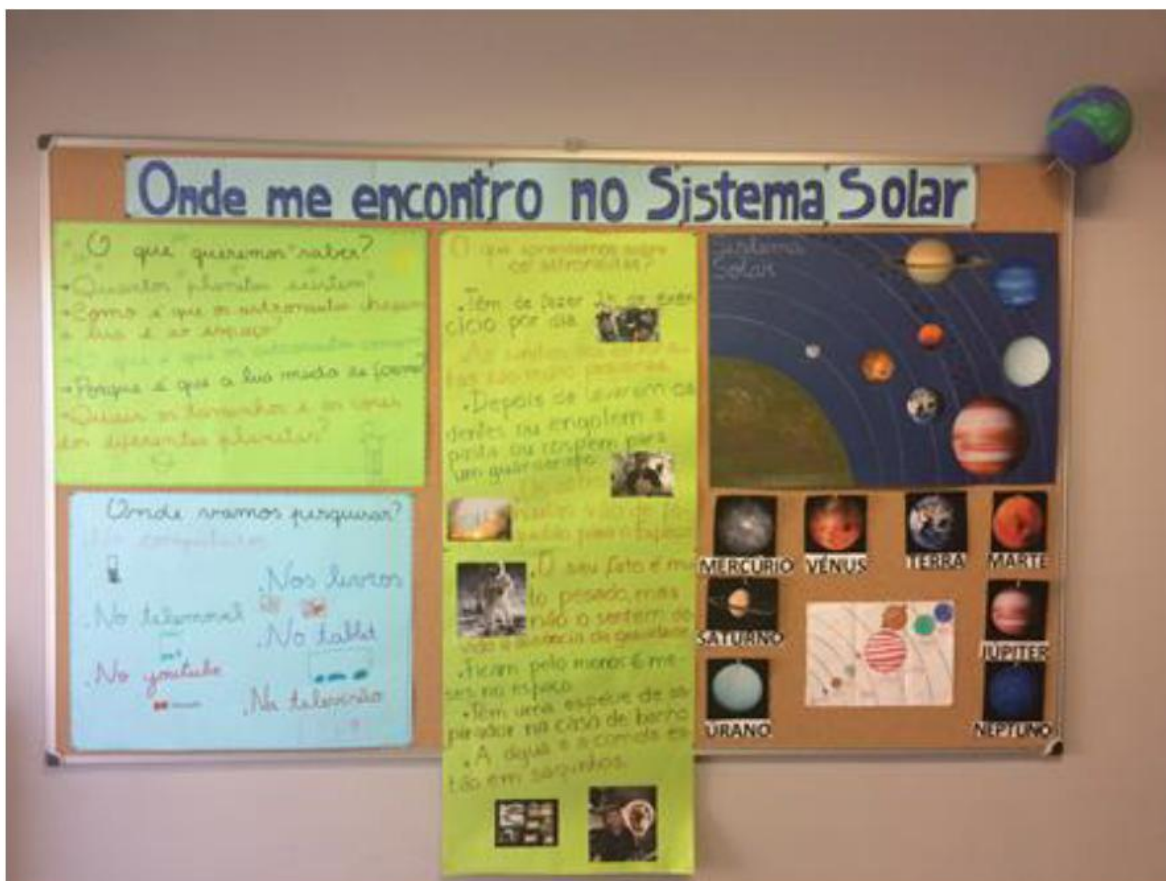 Onde me encontro no Sistema Solar
O que queremos saber?
→Quantos planetas existem?
→Como é que os astronautas chegam
à lua e ao espaço?
O que é que os astronautas
→Porque é que a lua muda de forma?
→Quais os tamanhos e as cores
dos diferentes planetas?
Onde vamos pesquisar?
.No computador
.Nos livros
.No telemóvel
.No tablet
.No youtube
.Na televisão
O que aprendemos sobre
os astronautas?
.Têm de fazer 2h de exer
cício por dia
.Depois de lavarem os
dentes ou engolem a
pasta ou cospem para
um guardanapo
.O seu fato é mui
to pesado, mas
não o sentem de
vido à ausência da gravidade
.Ficam pelo menos 6 me
ses no espaço
.Têm uma espécie de as
pirador na casa de banho
.A água e a comida es
tão em saquinhos.
Sistema
Solar
MERCÚRIO
VÉNUS
TERRA
MARTE
SATURNO
JÚPITER
ÚRANO
NEPTUNO